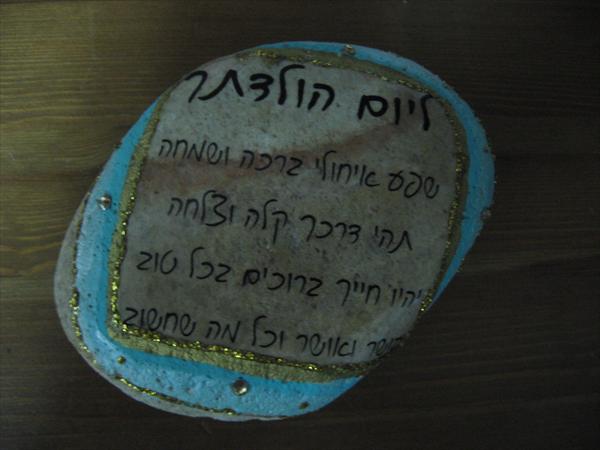 ליום הולדתך
שפע איחולי ברכה ושמחה
תהי דרכך קלה וצלחה
יהיו חייך ברוכים בכל טוב
ואושר וכל מה שחשוב